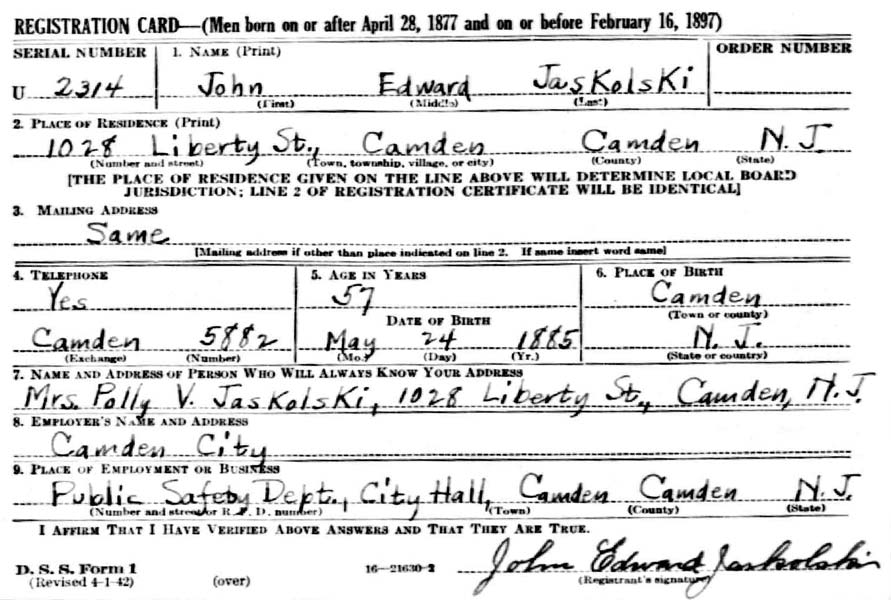 REGISTRATION CARD—(Men born on or after April 28, 1877 and on or before February 16, 1897)
SERIAL NUMBER 1. NAME (Print) ORDER NUMBER
U 2314 John Edward Jaskolski
(First) (Middle) (Last)
2. PLACE OF RESIDENCE (Print)
1028 Liberty St., Camden Camden N.J.
(Number and street) (Town, township, village, or city) (County) (State)
[THE PLACE OF RESIDENCE GIVEN ON THE LINE ABOVE WILL DETERMINE LOCAL BOARD
JURISDICTION; LINE 2 OF REGISTRATION CERTIFICATE WILL BE IDENTICAL]
3. MAILING ADDRESS
Same
[Mailing address if other than place indicated on line 2. If same insert word same]
4. TELEPHONE 5. AGE IN YEARS 6. PLACE OF BIRTH
Yes 57 Camden
DATE OF BIRTH (Town or county)
Camden 5882 May 24 1885 N.J.
(Exchange) (Number) (Mo.) (Day) (Yr.) (State or country)
7. NAME AND ADDRESS OF PERSON WHO WILL ALWAYS KNOW YOUR ADDRESS
Mrs. Polly V. Jaskolski, 1028 Liberty St., Camden, N.J.
8. EMPLOYER'S NAME AND ADDRESS
Camden City
9. PLACE OF EMPLOYMENT OR BUSINESS
Public Safety Dept., City Hall, Camden Camden N.J.
(Number and street or R. F. D. number) (Town) (County) (State)
I AFFIRM THAT I HAVE VERIFIED ABOVE ANSWERS AND THAT THEY ARE TRUE.
D. S. S. Form 1 16—21630-2 John Edward Jaskolski
(Revised 4-1-42) (over) (Registrant's signature)